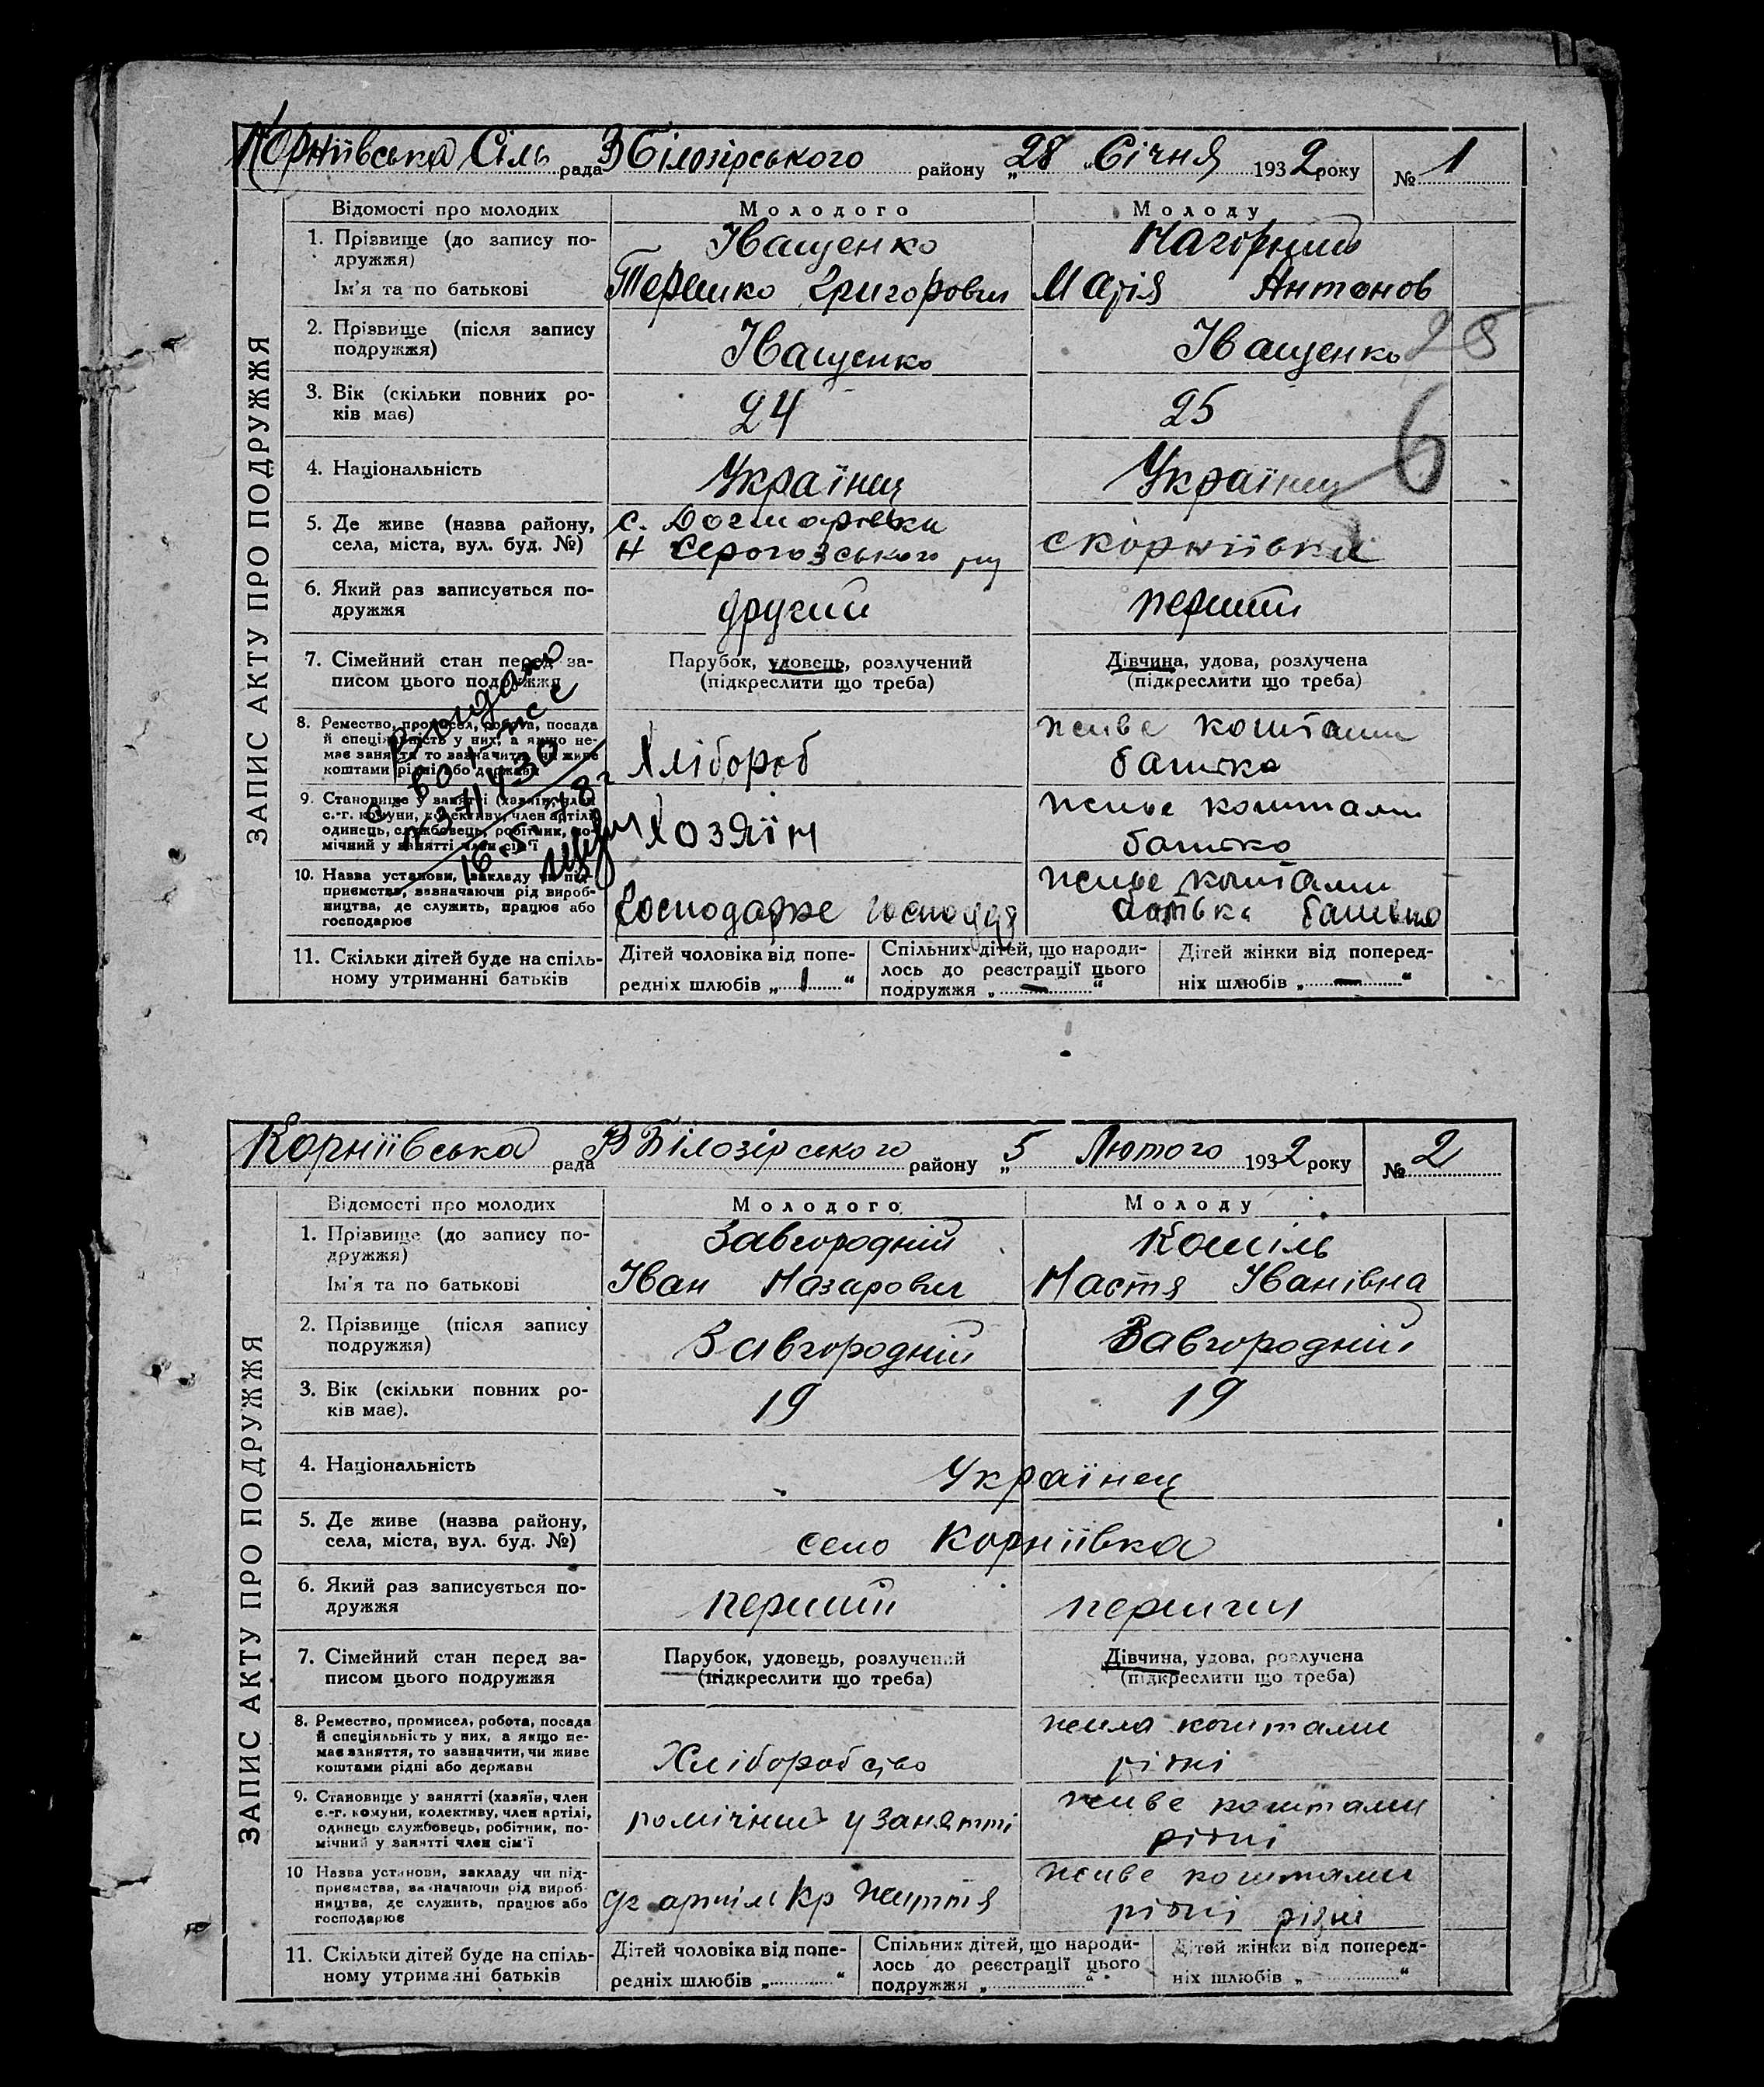 Корніївська Сіль рада В Білозірського району „28 „ Січня 1932 року № 1
ЗАПИС АКТУ ПРО ПОДРУЖЖЯ
Відомості про молодих Молодого Молоду
1. Прізвище (до запису по-
дружжя)
Іващенко Нагорний
Ім'я та по батькові Терешко Григорович Марія Антонов
2. Прізвище (після запису
подружжя)
Іващенко Іващенко
25
3. Вік (скільки повних ро-
ків має)
24 25
6
4. Національність Українец Українец
5. Де живе (назва району,
села, міста, вул. буд. №)
с.
Н Серогозського с Корніївка
6. Який раз записується по-
дружжя
другий перший
7. Сімейний стан перед за-
писом цього подружжя
Парубок, удовець, розлучений
(підкреслити що треба)
Дівчина, удова, розлучена
(підкреслити що треба)
8. Ремество, промисел, робота, посада
й спеціяльність у них, а якщо не-
має заняття то зазначити, чи живе
коштами рідні або держави
Хлібороб
живе коштами
батька
9. Становище у занятті (хазяїн, член
с.-г. комуни, колективу, член артілі,
одинець, службовець, робітник, по-
мічний у занятті член сім'ї
Хозяїн
живе коштами
батько
10. Назва установи, закладу чи під-
приємства, зазначаючи рід вироб-
ництва, де служить, працює або
господарює
Господарює
живе коштами
Видано
16.5.78г
11. Скільки дітей буде на спіль-
ному утриманні батьків
Дітей чоловіка від попе-
редніх шлюбів „ 1 “
Спільних дітей, що народи-
лось до реєстрації цього
подружжя „ — “
Дітей жінки від поперед-
ніх шлюбів „ — “
Корніївська рада В Білозірського району „5 Лютого 1932 року № 2
ЗАПИС АКТУ ПРО ПОДРУЖЖЯ
Відомості про молодих Молодого Молоду
1. Прізвище (до запису по-
дружжя)
Завгородній Кошіль
Ім'я та по батькові Іван Назарович Настя Іванівна
2. Прізвище (після запису
подружжя)
Завгородній Завгородній
3. Вік (скільки повних ро-
ків має).
19 19
4. Національність Українец
5. Де живе (назва району,
села, міста, вул. буд. №)
село Корніївка
6. Який раз записується по-
дружжя
перший перший
7. Сімейний стан перед за-
писом цього подружжя
Парубок, удовець, розлучений
(підкреслити що треба)
Дівчина, удова, розлучена
(підкреслити що треба)
8. Ремество, промисел, робота, посада
й спеціяльність у них, а якщо не-
має заняття, то зазначити, чи живе
коштами рідні або держави
Хліборобство
жила коштами
рідні
9. Становище у занятті (хазяїн, член
с.-г. комуни, колективу, член артілі,
одинець службовець, робітник, по-
мічний у занятті член сім'ї
помічний у занятті
живе коштами
рідні
10 Назва установи, закладу чи під-
приємства, зазначаючи рід вироб-
ництва, де служить, працює або
господарює
артіль Кр Життя
живе коштами
рідні рідні
11. Скільки дітей буде на спіль-
ному утриманні батьків
Дітей чоловіка від попе-
редніх шлюбів „ “
Спільних дітей, що народи-
лось до реєстрації цього
подружжя „ “
Дітей жінки від поперед-
ніх шлюбів „ “